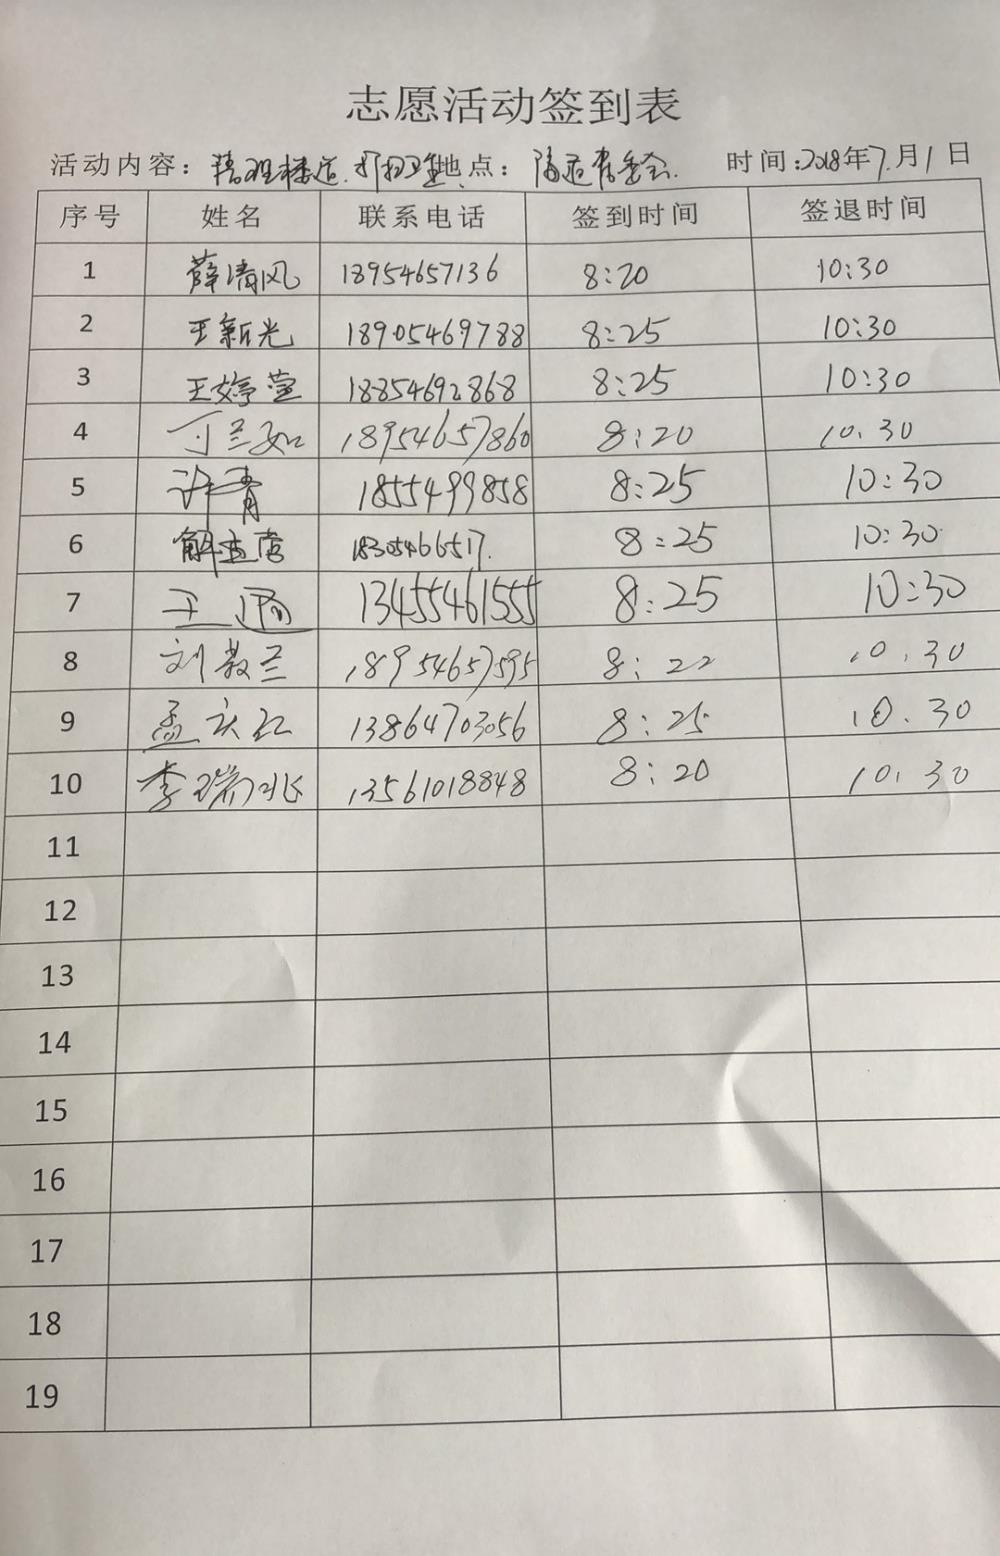 志愿活动签到表
活动内容：清理楼道.打扫卫生 地点： 居委会. 时间：2018年7月1日
序号 姓名 联系电话 签到时间 签退时间
1 薛清风 18954657136 8:20 10:30
2 王新光 18905469788 8:25 10:30
3 王婷莹 18854692868 8:25 10:30
4 兰如 18954657860 8:20 10.30
5 许青 1855499858 8:25 10:30
6 解 18305466517. 8:25 10:30
7 王 13455461555 8:25 10:30
8 刘教兰 18954657595 8:22 10.30
9 孟庆红 13864703056 8:25 10.30
10 李瑞兆 13561018848 8:20 10.30
11
12
13
14
15
16
17
18
19